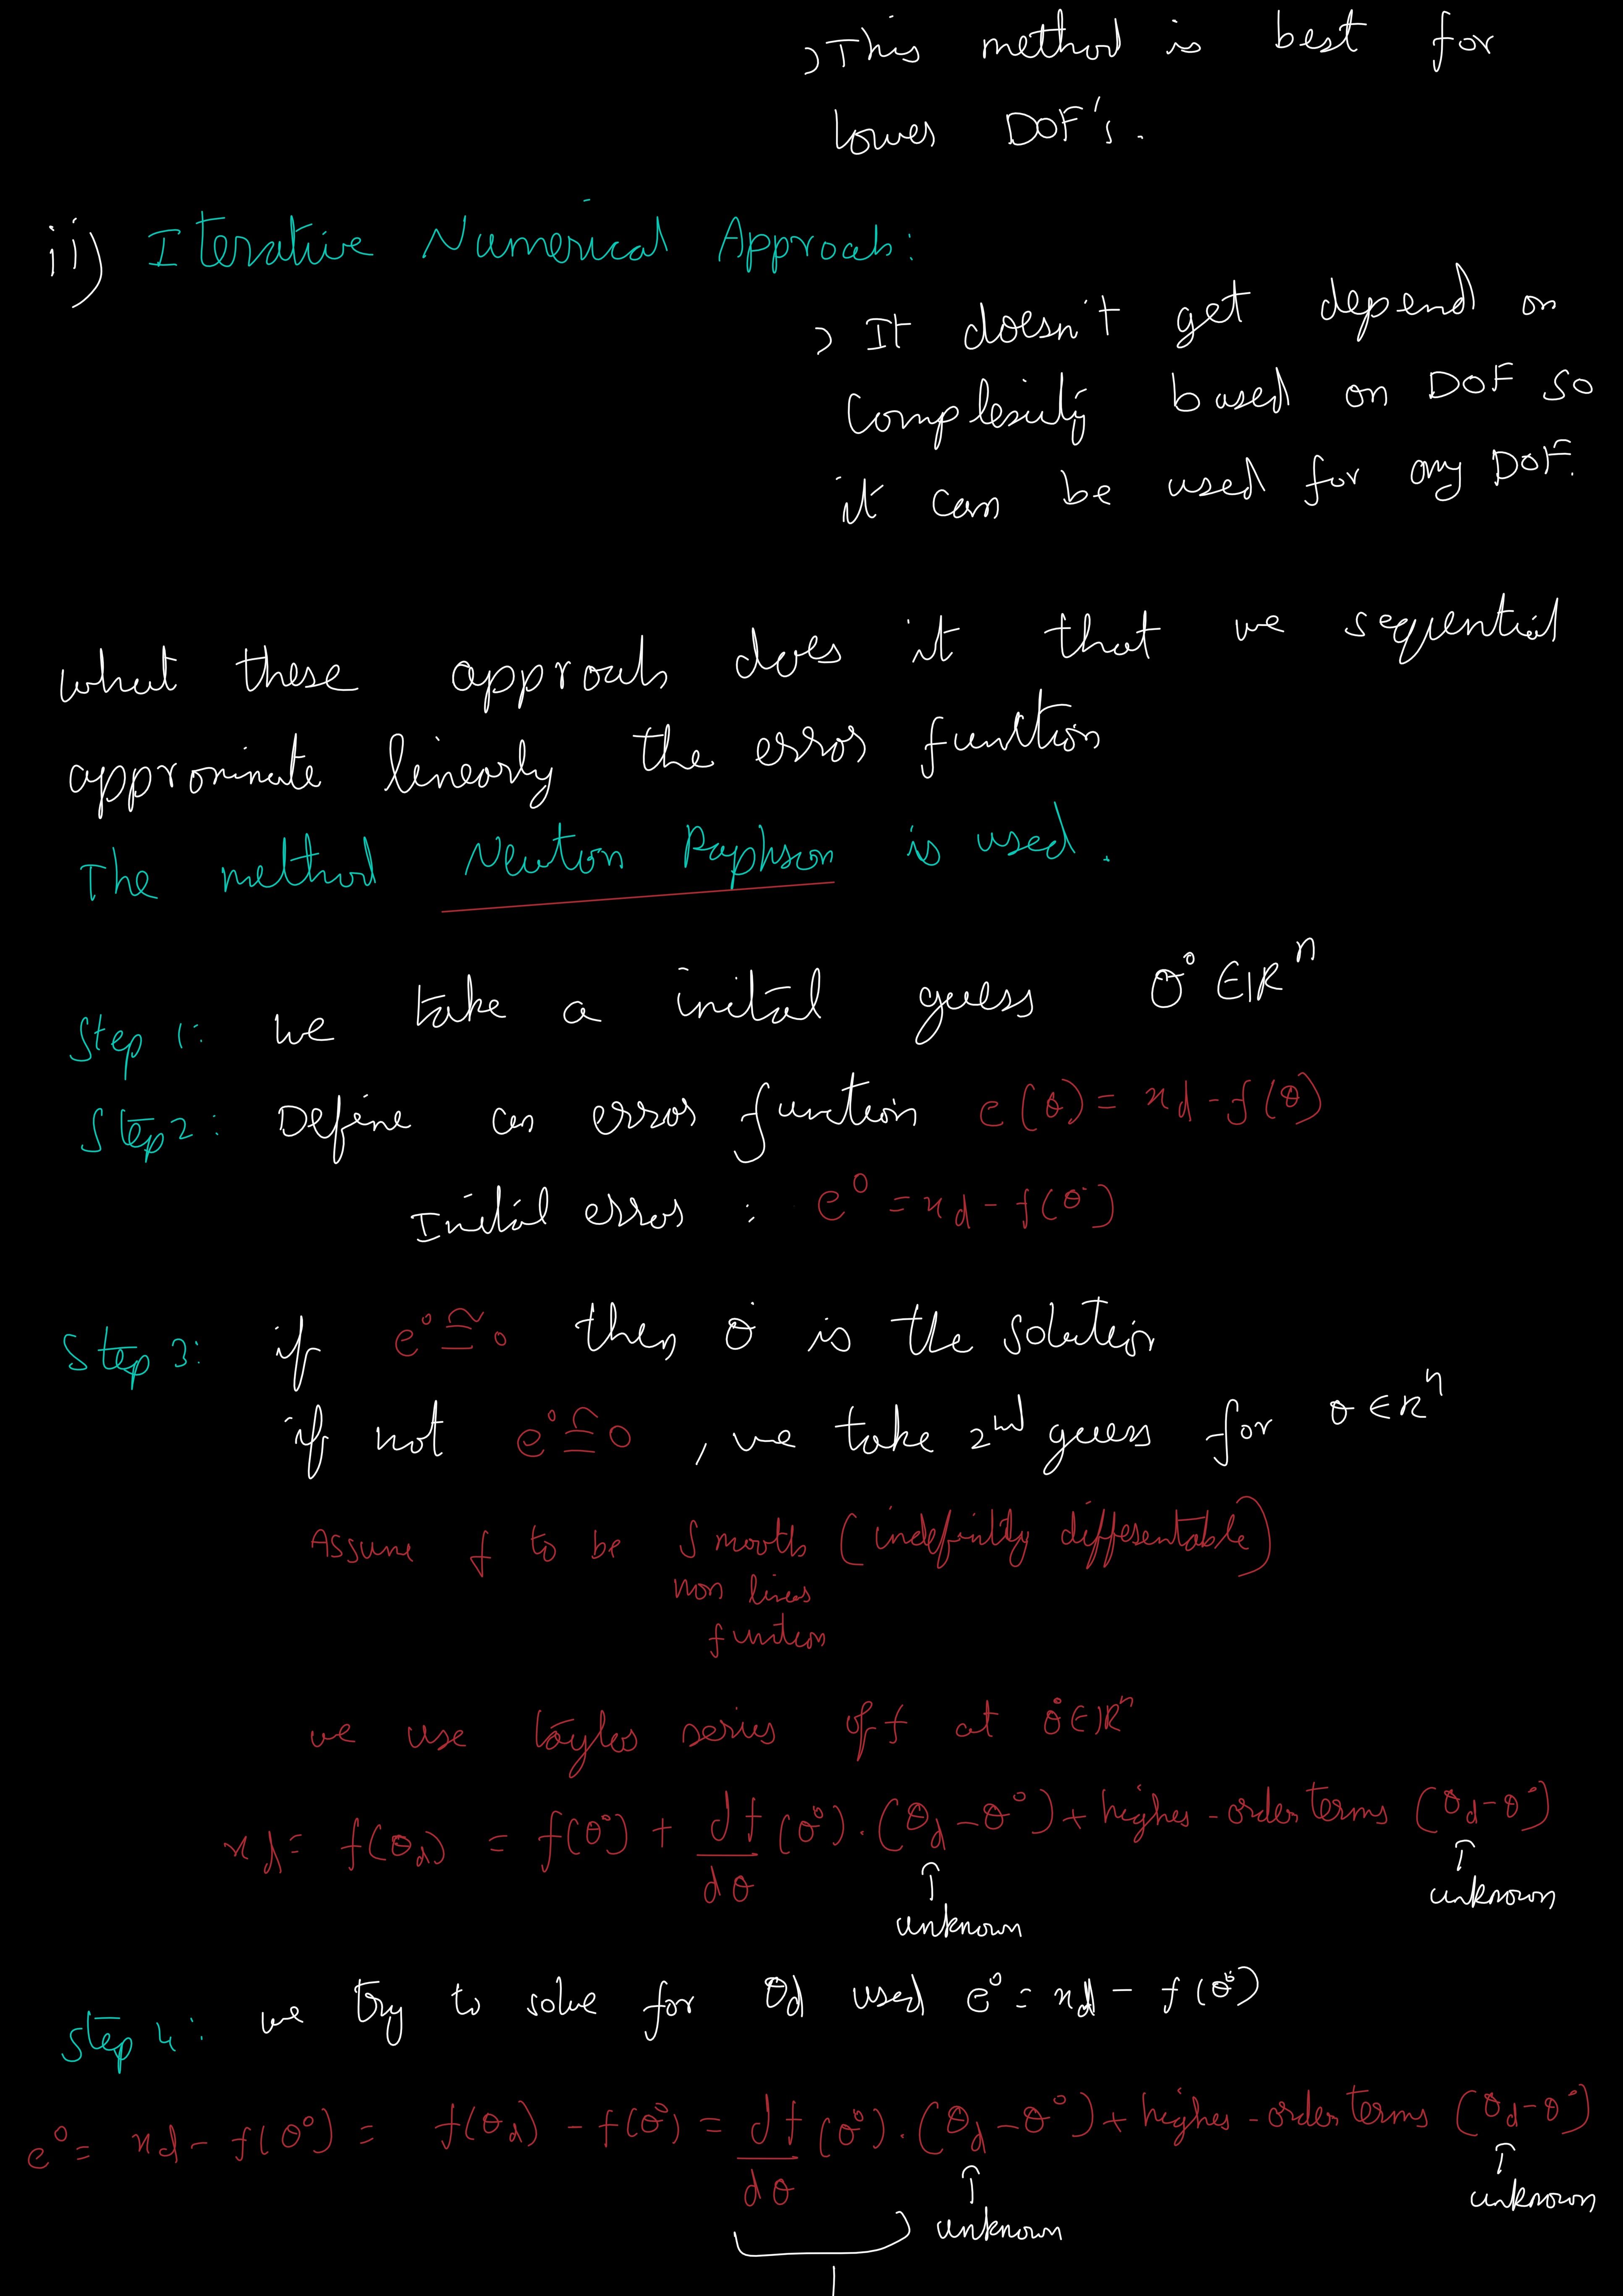 >This method is best for
lower DOF's.
ii) Iterative Numerical Approach:
> It doesn't get depend on
Complexity based on DOF so
it can be used for any DOF.
what these approach does it that we sequential
approximate linearly the error function
The method Newton Raphson is used.
Step 1: we take a inital guess θ⁰ ∈ ℝⁿ
Step 2: Define an error function e(θ) = xd - f(θ)
Initial error : e⁰ = xd - f(θ⁰)
Step 3: if e⁰ ≅ 0 then θ⁰ is the solution
if not e⁰ ≅ 0 , we take 2nd guess for θ ∈ ℝⁿ
Assume f to be smooth (indefinitly differentable)
non linear
function
we use taylor series of f at θ⁰ ∈ ℝⁿ
xd = f(θd) = f(θ⁰) + df/dθ (θ⁰) . (θd - θ⁰) + higher - order terms (θd - θ⁰)
unknown unknown
Step 4: we try to solve for θd used e⁰ = xd - f(θ⁰)
e⁰ = xd - f(θ⁰) = f(θd) - f(θ⁰) = df/dθ (θ⁰) . (θd - θ⁰) + higher - order terms (θd - θ⁰)
unknown unknown